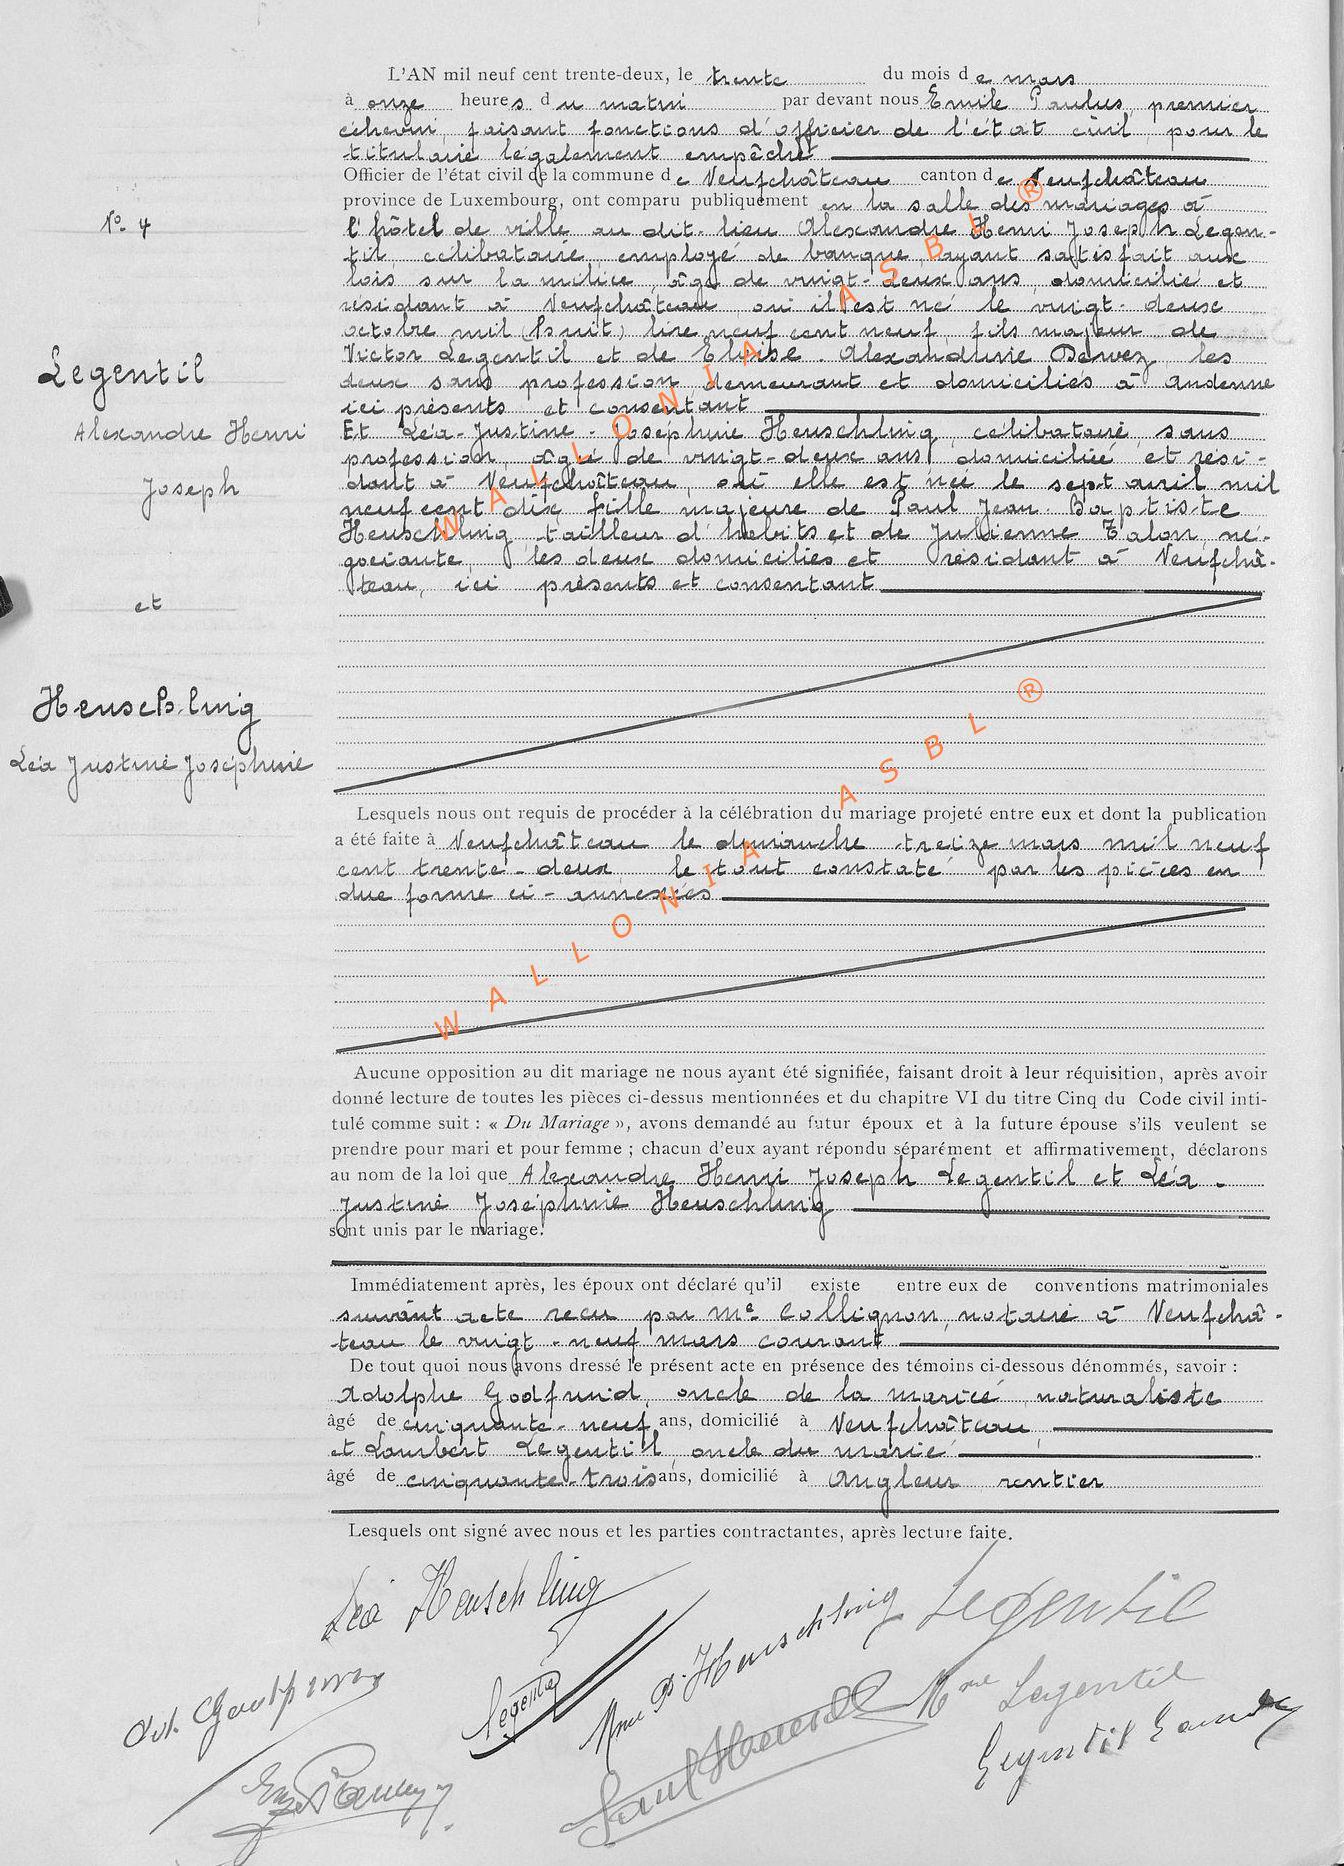 L'AN mil neuf cent trente-deux, le trente du mois de mars
à onze heures du matin par devant nous Emile Paulus, premier
échevin, faisant fonctions d'officier de l'état civil, pour le
titulaire légalement empêché
Officier de l'état civil de la commune de Neufchâteau canton de Neufchâteau
province de Luxembourg, ont comparu publiquement en la salle des mariages à
N° 4
l'hôtel de ville au dit-lieu Alexandre Henri Joseph Legen-
til, célibataire, employé de banque, ayant satisfait aux
lois sur la milice, âgé de vingt-deux ans, domicilié et
résidant à Neufchâteau, où il est né le vingt-deux
octobre mil (huit) lire neuf cent neuf, fils majeur de
Victor Legentil et de Eloïse-Alexandrine Dewez les
deux sans profession demeurant et domiciliés à Andenne
ici présents et consentant
Legentil
Alexandre Henri
Joseph
et
Heuschling
Léa Justine Joséphine
Et Léa-Justine-Joséphine Heuschling, célibataire, sans
profession, âgée de vingt-deux ans, domiciliée et rési-
dant à Neufchâteau, où elle est née le sept avril mil
neuf cent dix, fille majeure de Paul Jean-Baptiste
Heuschling, tailleur d'habits et de Julienne Talon, né-
gociante, les deux domiciliés et résidant à Neufchâ-
teau, ici présents et consentant
Lesquels nous ont requis de procéder à la célébration du mariage projeté entre eux et dont la publication
a été faite à Neufchâteau le dimanche treize mars mil neuf
cent trente-deux, le tout constaté par les pièces en
due forme ci-annexées
Aucune opposition au dit mariage ne nous ayant été signifiée, faisant droit à leur réquisition, après avoir
donné lecture de toutes les pièces ci-dessus mentionnées et du chapitre VI du titre Cinq du Code civil inti-
tulé comme suit : « Du Mariage », avons demandé au futur époux et à la future épouse s'ils veulent se
prendre pour mari et pour femme ; chacun d'eux ayant répondu séparément et affirmativement, déclarons
au nom de la loi que Alexandre Henri Joseph Legentil et Léa-
Justine Joséphine Heuschling
sont unis par le mariage.
Immédiatement après, les époux ont déclaré qu'il existe entre eux de conventions matrimoniales
suivant acte reçu par Me Collignon, notaire à Neufchâ-
teau le vingt-neuf mars courant
De tout quoi nous avons dressé le présent acte en présence des témoins ci-dessous dénommés, savoir :
Adolphe Godfrind, oncle de la mariée, naturaliste
âgé de cinquante-neuf ans, domicilié à Neufchâteau,
et Lambert Legentil, oncle du marié
âgé de cinquante-trois ans, domicilié à Angleur rentier
Lesquels ont signé avec nous et les parties contractantes, après lecture faite.
Léa Heuschling
Legentil
Mme P. Heuschling
Legentil
Mme Legentil
Legentil
WALLONIA ASBL ®
WALLONIA ASBL ®